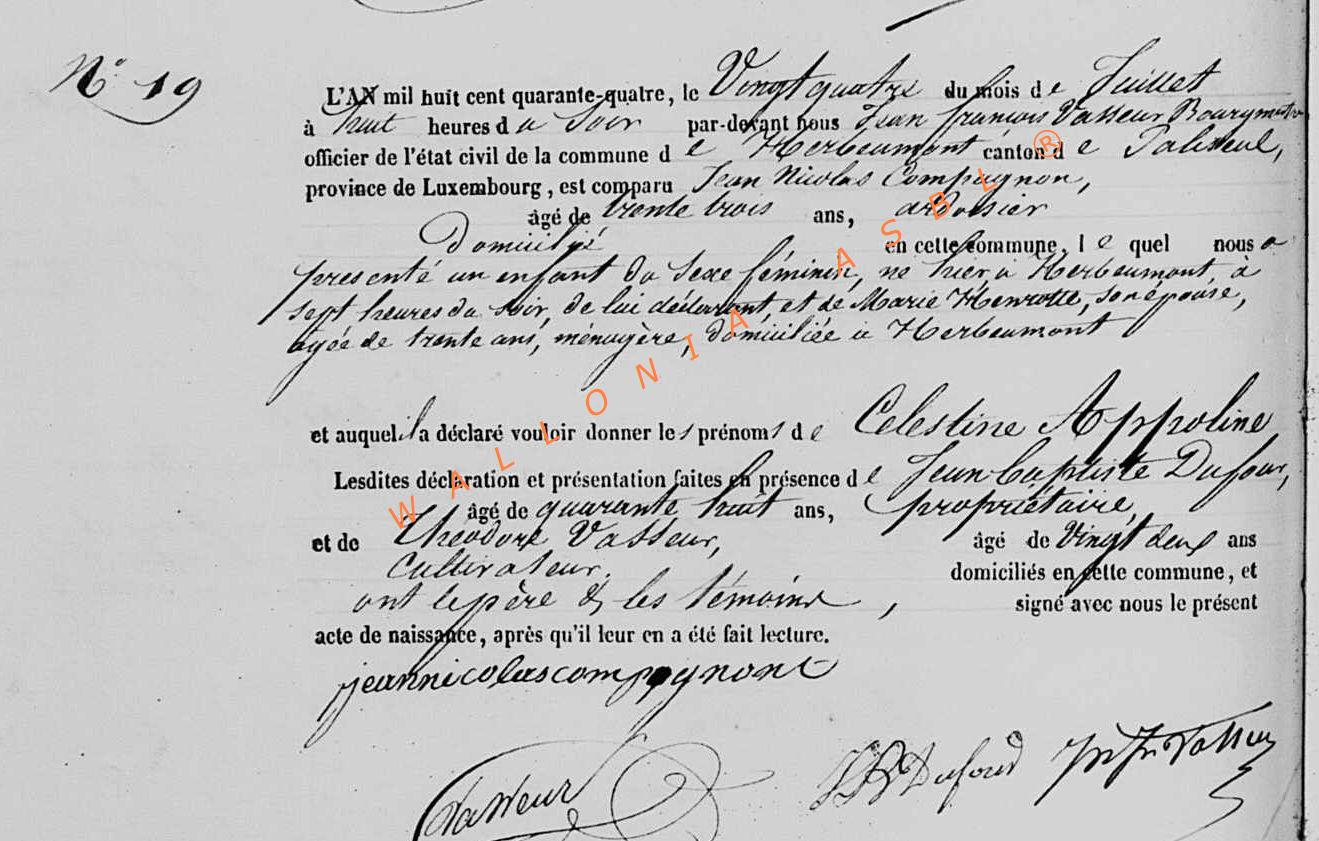 N° 19
L'AN mil huit cent quarante-quatre, le Vingt quatre du mois de Juillet
à huit heures du Soir par-devant nous Jean françois Vasseur Bourgmestre
officier de l'état civil de la commune de Herbeumont canton de Paliseul,
province de Luxembourg, est comparu Jean Nicolas Compagnon,
âgé de trente trois ans, ardoisier
Domicilié en cette commune, lequel nous a
présenté un enfant du Sexe féminin, né hier à Herbeumont, à
sept heures du soir, de lui déclarant, et de Marie Henrotte, son épouse,
agée de trente ans, ménagère, domiciliée à Herbeumont
et auquel il a déclaré vouloir donner les prénoms de Celestine Appoline
Lesdites déclaration et présentation faites en présence de Jean Baptiste Dufour,
âgé de quarante huit ans, propriétaire,
et de Théodore Vasseur, âgé de Vingt deux ans
Cultivateur. domiciliés en cette commune, et
ont le père & les témoins, signé avec nous le présent
acte de naissance, après qu'il leur en a été fait lecture.
jeannicolascompagnont
Vasseur JB Dufour Vasseur
WALLONIA ASBL ®